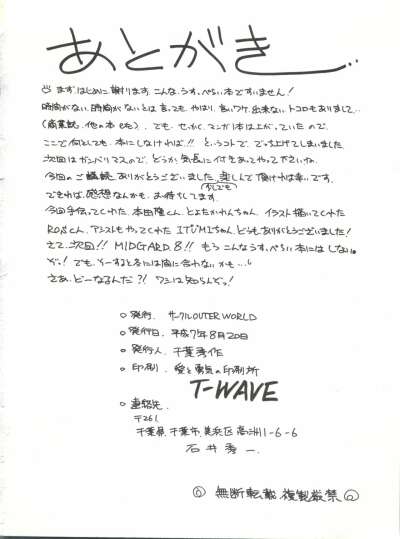 あとがき…
まずはじめに謝ります。こんな、うすっぺらい本ですいません!
時間がない、時間がないとは言っても、やはり、言いワケ、出来ないトコロもありまして…
(商業誌、他の本 etc)。でも、せっかく、マンガ1本は上がっていたので、
ここで何としても、本にしなければ!!というコトで、でっち上げてしまいました
次回はガンバリマスので、どうか気長に付きあってやって下さいね。
今回のご購読ありがとうございました。楽しんで頂ければ幸いです。
少しでも
できれば、感想なんかも、お待ちしてます。
今回手伝ってくれた、本田隆くん、とよたかわんちゃん、イラスト描いてくれた
ROSくん、アシストもやってくれたITUMIちゃん、どうもありがとうございました!
さて、次回!! MIDGARD.8!! もうこんなうすっぺらい本にはしない
ぞっ! でも、そーすると冬には間に合わないかも…
さあ、どーなるんだ?! ワシは知らんぞっ!
○発行. サークルOUTER WORLD
○発行日. 平成7年8月20日
○発行人. 千葉秀作
○印刷. 愛と勇気の印刷所
T-WAVE
○連絡先.
〒261
千葉県、千葉市、美浜区高洲1-6-6
石井秀一.
◎ 無断転載 複製厳禁